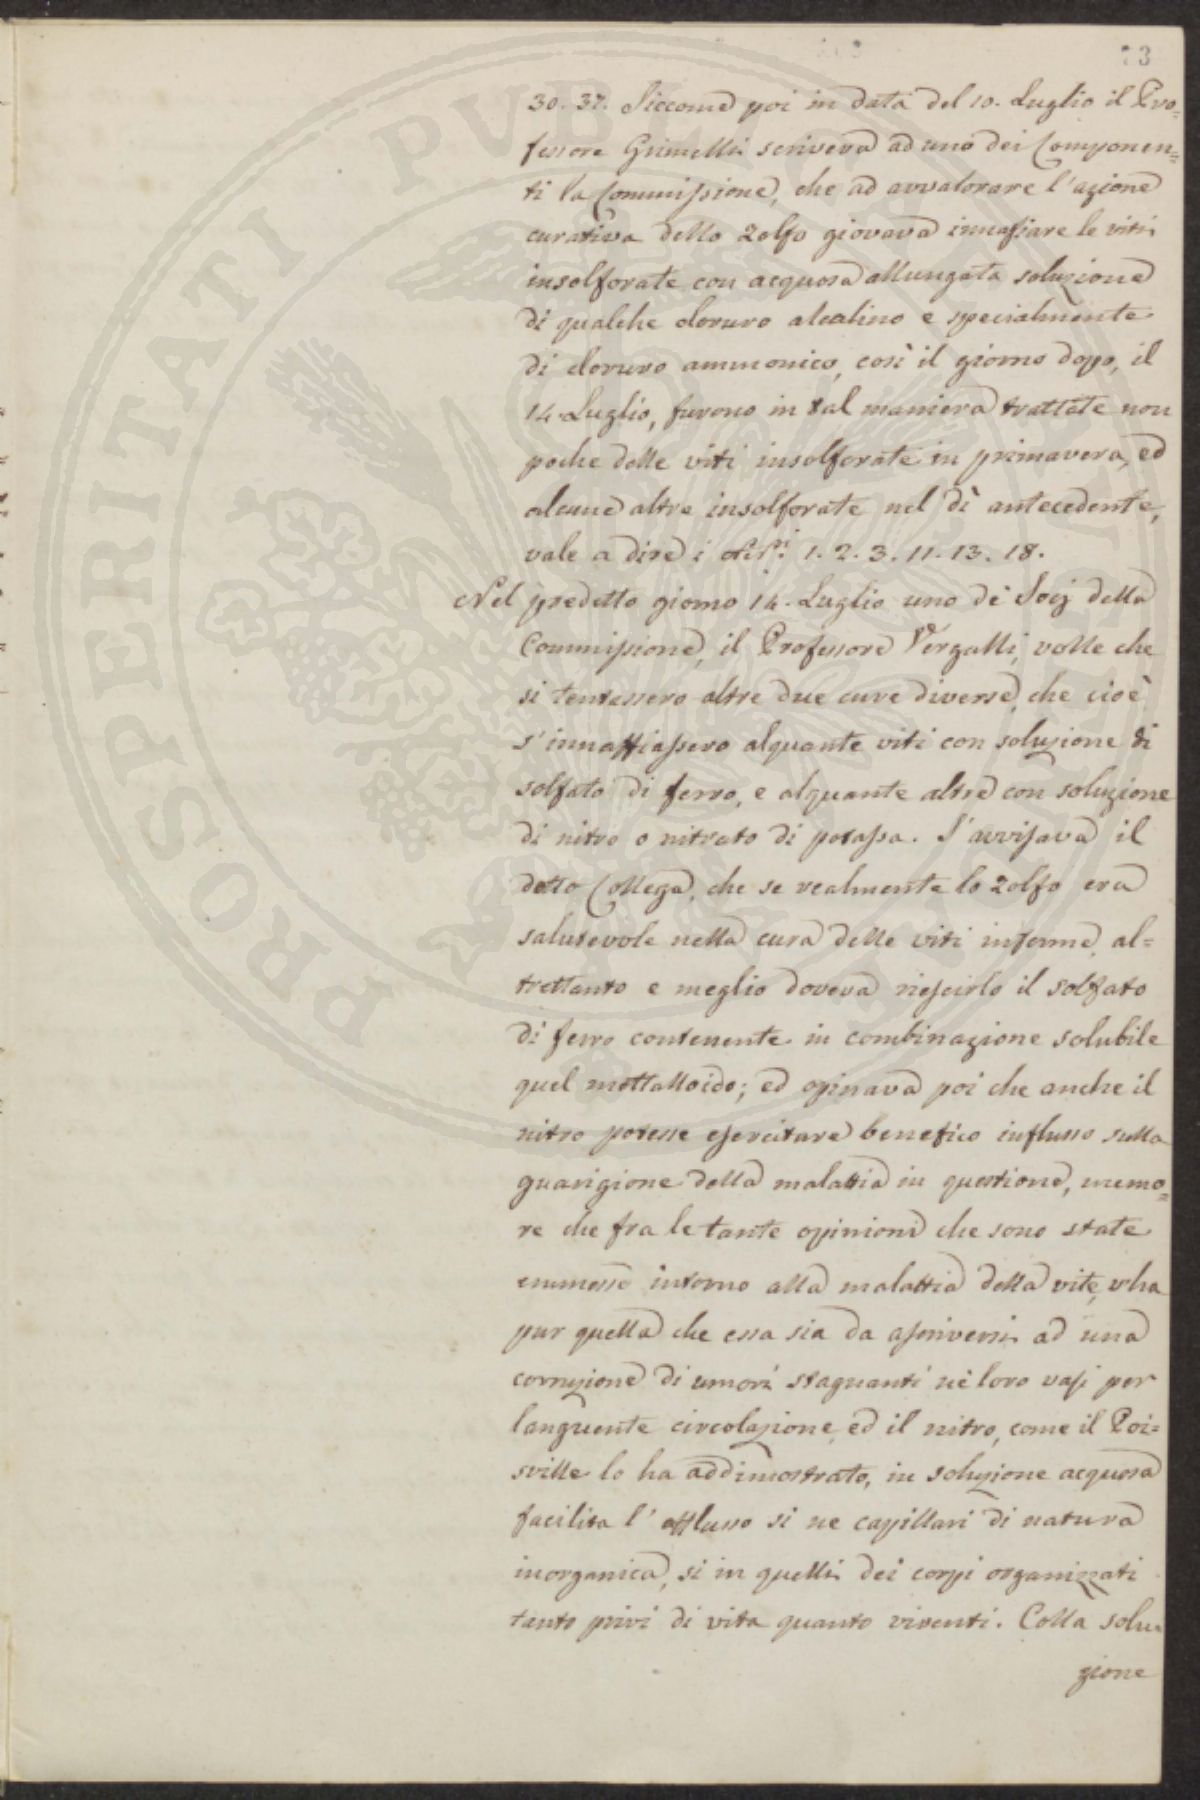 73
30. 37. Siccome poi in data del 10. Luglio il Pro=
fessore Grimelli scriveva ad uno dei Componen=
ti la Commissione, che ad avvalorare l'azione
curativa dello Zolfo giovava innaffiare le viti
insolforate con acquosa allungata soluzione
di qualche cloruro alcalino e specialmente
di cloruro ammonico, così il giorno dopo, il
14. Luglio, furono in tal maniera trattate non
poche delle viti insolforate in primavera, ed
alcune altre insolforate nel dì antecedente,
vale a dire i 1. 2. 3. 11. 13. 18.
Nel predetto giorno 14. Luglio uno de' Socj della
Commissione, il Professore Vergalli, volle che
si tentassero altre due cure diverse, che cioè
s'innaffiassero alquante viti con soluzione di
solfato di ferro, e alquante altre con soluzione
di nitro o nitrato di potassa. S'avvisava il
dotto Collega, che se realmente lo Zolfo era
salutevole nella cura delle viti inferme, al=
trettanto e meglio doveva riescirlo il solfato
di ferro contenente in combinazione solubile
quel mettalloido; ed opinava poi che anche il
nitro potesse esercitare benefico influsso sulla
guarigione della malattia in questione, memo=
re che fra le tante opinioni che sono state
emmesse intorno alla malattia della vite, v'ha
pur quella che essa sia da ascriversi ad una
corruzione di umori stagnanti ne' loro vasi per
languente circolazione, ed il nitro, come il Poi=
sville lo ha addimostrato, in soluzione acquosa
facilita l'afflusso si ne capillari di natura
inorganica, si in quelli dei corpi organizzati
tanto privi di vita quanto viventi. Colla solu=
zione
PROSPERITATI